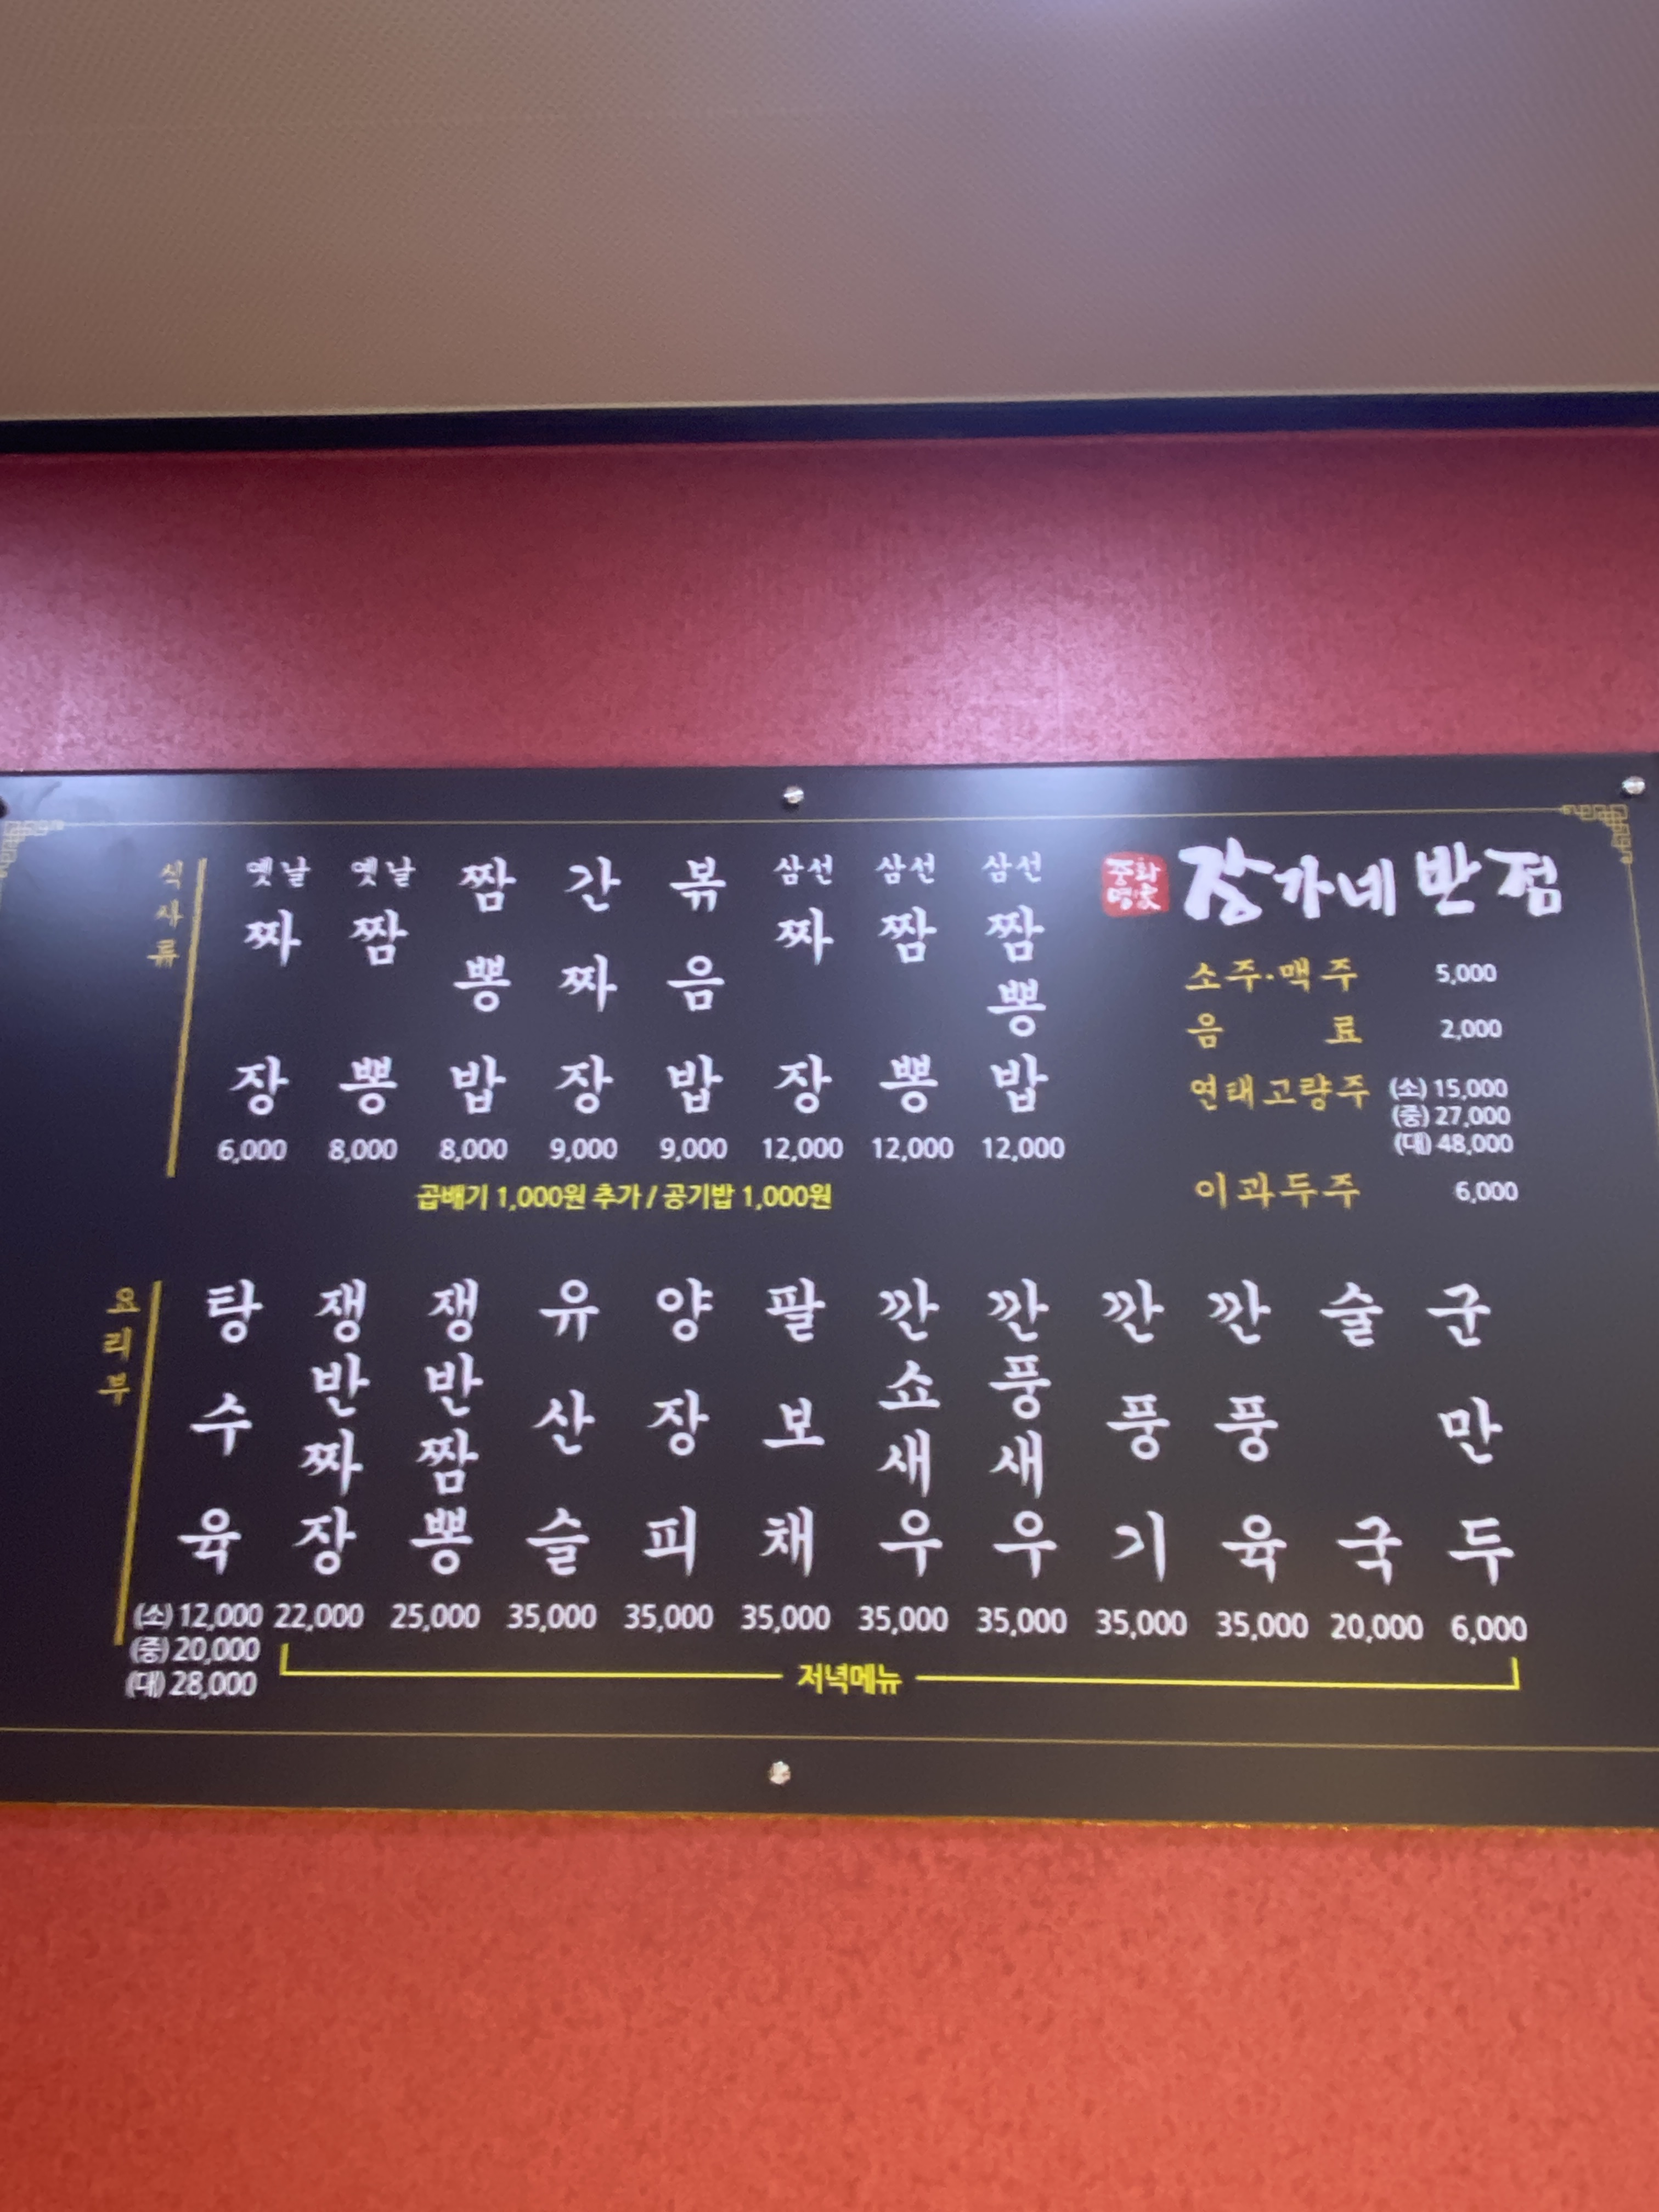 중화
명家
장가네반점
식사류
옛날 짜장 6,000
옛날 짬뽕 8,000
짬뽕밥 8,000
간짜장 9,000
볶음밥 9,000
삼선 짜장 12,000
삼선 짬뽕 12,000
삼선 짬뽕밥 12,000
곱배기 1,000원 추가 / 공기밥 1,000원
소주·맥주 5,000
음료 2,000
연태고량주 (소) 15,000
(중) 27,000
(대) 48,000
이과두주 6,000
요리부
탕수육 (소) 12,000
(중) 20,000
(대) 28,000
쟁반짜장 22,000
쟁반짬뽕 25,000
유산슬 35,000
양장피 35,000
팔보채 35,000
깐쇼새우 35,000
깐풍새우 35,000
깐풍기 35,000
깐풍육 35,000
술국 20,000
군만두 6,000
저녁메뉴